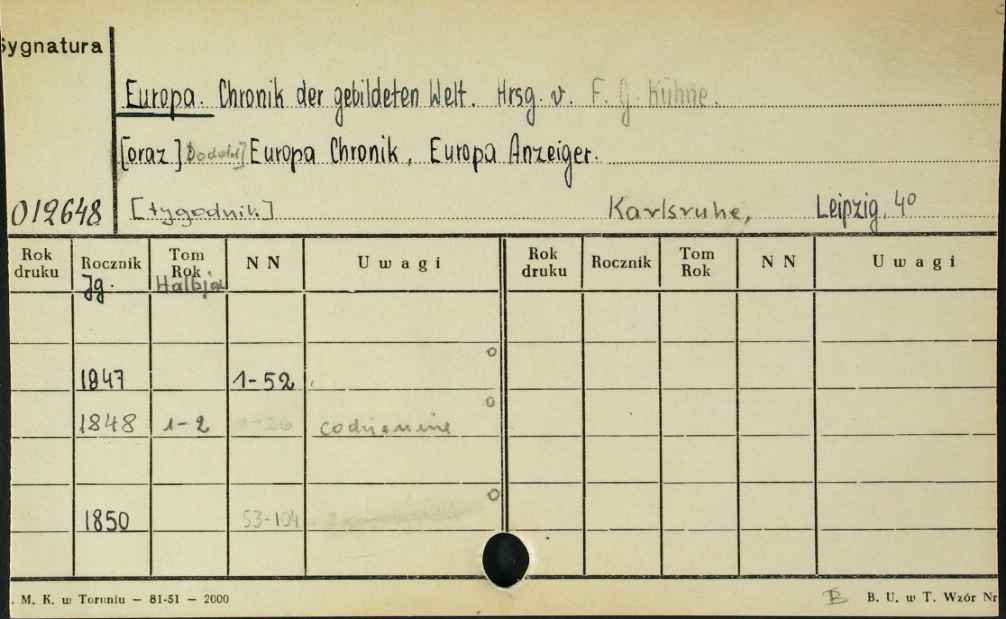 Sygnatura
Europa. Chronik der gebildeten Welt. Hrsg. v. F. G. Kühne.
[oraz] Dodatki] Europa Chronik, Europa Anzeiger.
012648 [tygodnik] Karlsruhe, Leipzig, 4º
Rok druku Rocznik Tom Rok N N Uwagi Rok druku Rocznik Tom Rok N N Uwagi
Jg. Halbjar
1847 1-52
1848 1-2 codziennie
1850 53-104
. M. K. w Toruniu — 81-51 — 2000 B. U. w T. Wzór Nr